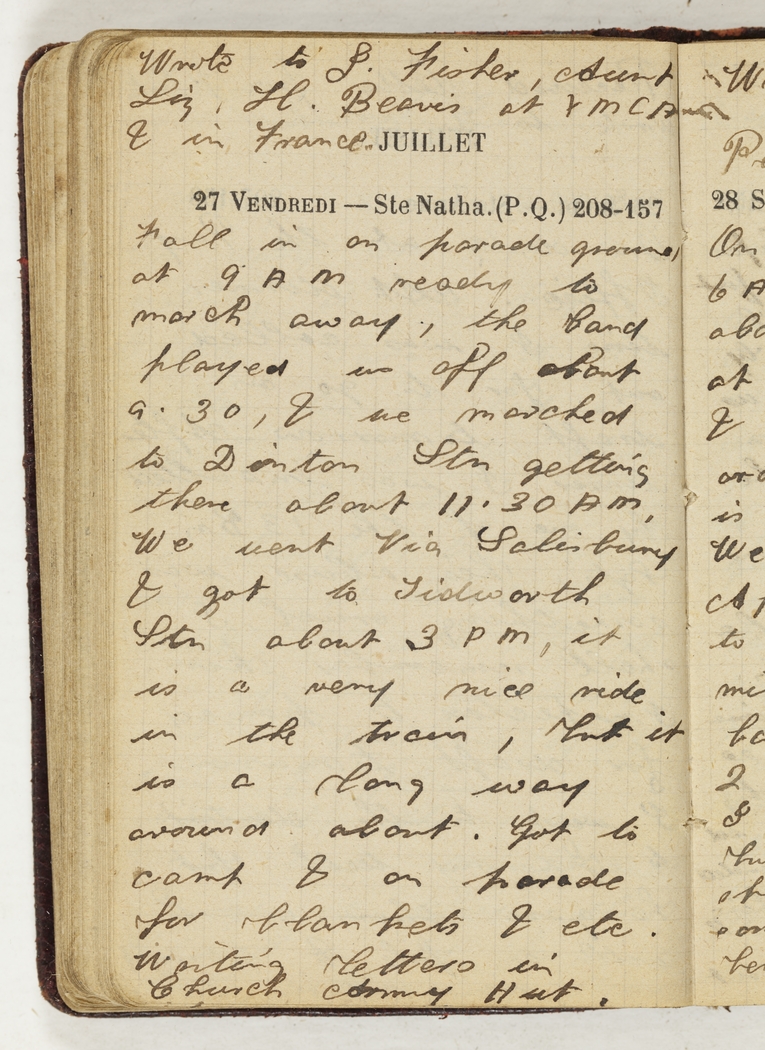 Wrote to J. Fisher, Aunt
Liz, H. Beavis at YMCA
& in France.
JUILLET
27 VENDREDI — Ste Natha. (P.Q.) 208-157
Fall in on parade ground
at 9 AM ready to
march away, the band
played us off about
9.30, & we marched
to Dinton Stn getting
there about 11.30 AM,
We went Via Salisbury
& got to Tidworth
Stn about 3 PM, it
is a very nice ride
in the train, but it
is a long way
around about. Got to
camp & on parade
for blankets & etc.
Writing letters in
Church Army Hut.
28 S
On
6 A
abo
at
&
is
We
to
mi
2